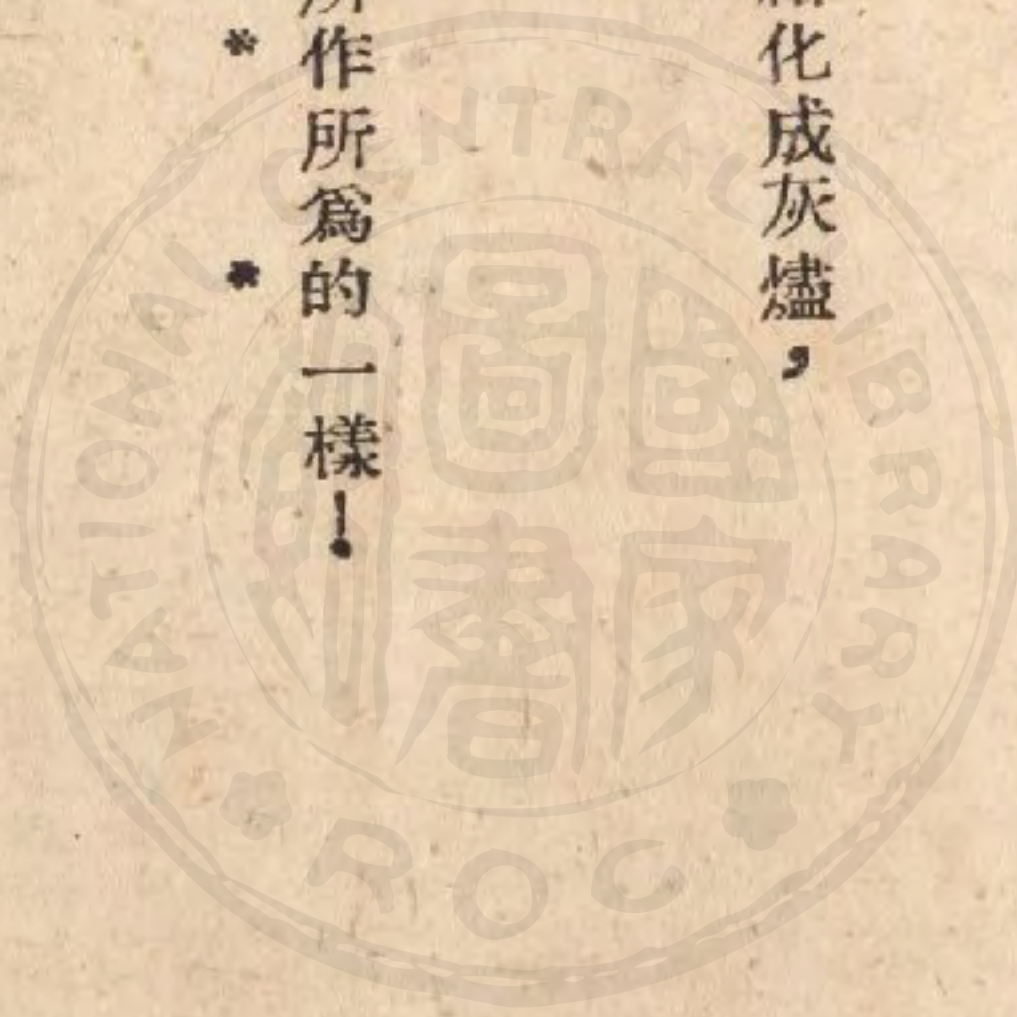 化成灰燼,
所作所爲的一樣!
* *
NATIONAL CENTRAL LIBRARY
國家圖書
ROC